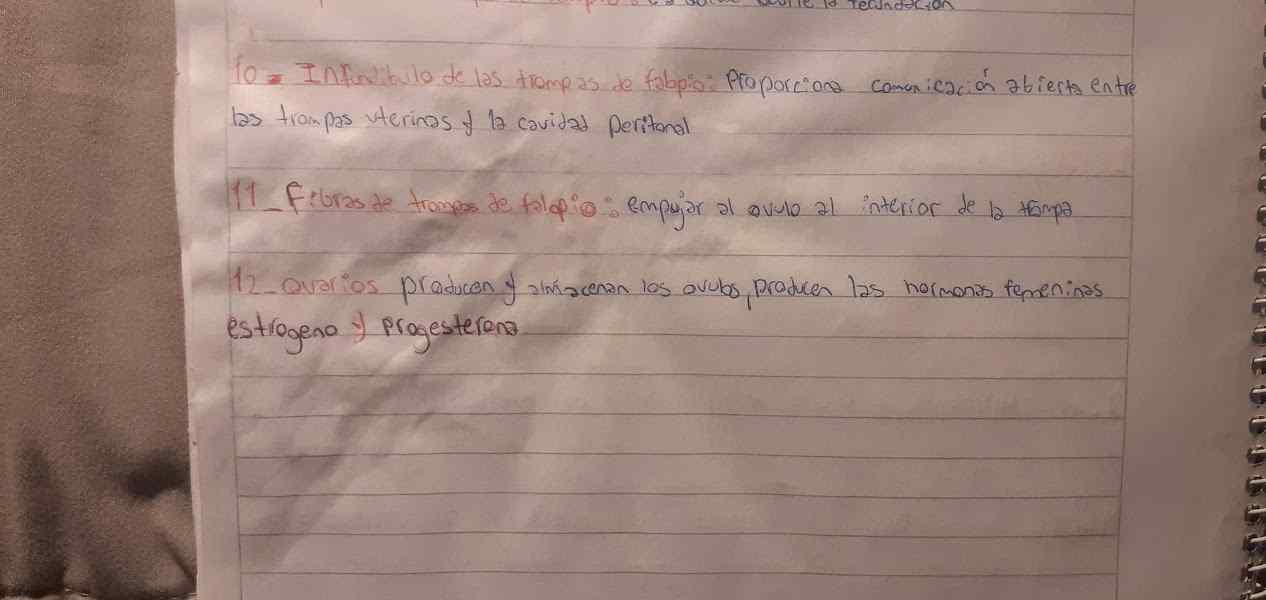 la fecundación
10- Infundibulo de las trompas de falopio: Proporciona comunicación abierta entre
las trompas uterinas y la cavidad peritonal
11_ Febras de trompas de falopio: empujar al ovulo al interior de la trompa
12_ ovarios producen y almacenan los ovulos, producen las hormonas femeninas
estrogeno y progesterona